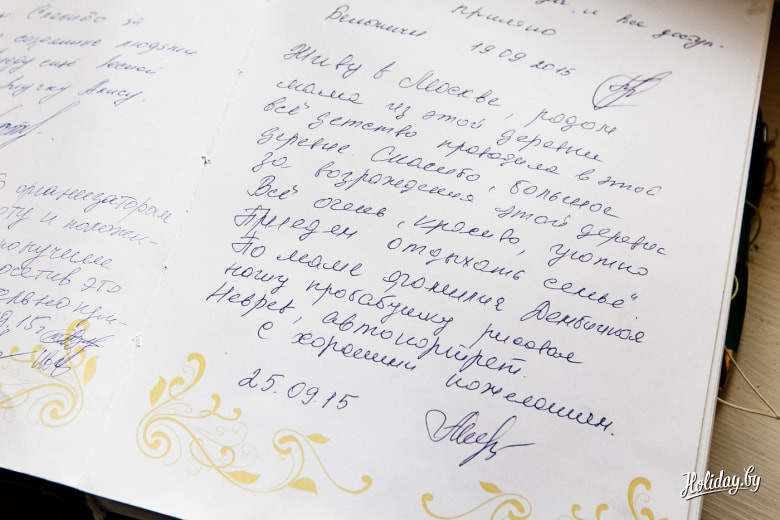 Спасибо за
людьми
внучку Алису.
организаторам
посетив это
и все доступ-
приятно
Белыничи 19 09 2015
Живу в Москве, родом
мама из этой деревни
всё детство проводила в этой
деревне Спасибо, большое
за возраждения этой деревне
Всё очень, красиво, уютно
Приедем отдыхать семьей
По маме фамилия Дембицкая
нашу прабабушку, рисовал
Неврев, автопортрет.
С хорошими пожеланиям.
25.09.15
Holiday.by